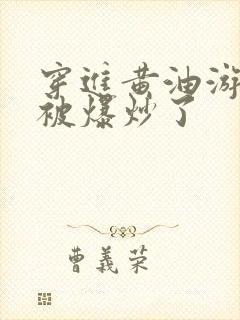 穿進黄油游
被爆炒了
曹義荣